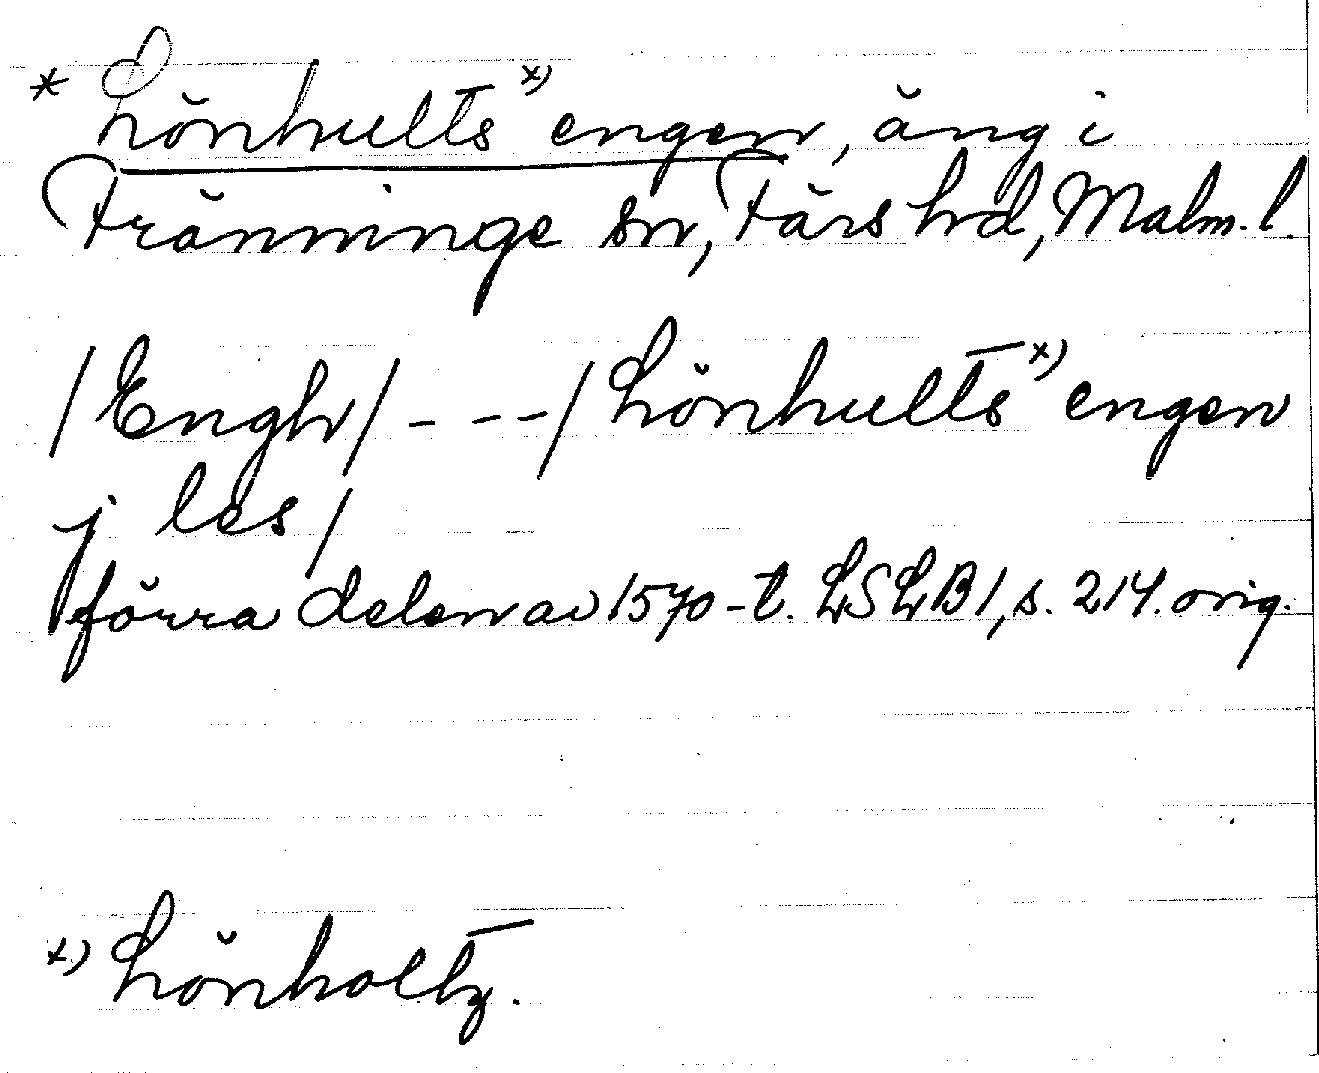 * Lönhults x) engen, äng i
Tränninge sn, Färs hd, Malm. l.
/Engh/ - - - / Lönhults x) engen
j les /
förra delen av 1570-t. LSLB 1, s. 214. orig.
x) Lönholtz.